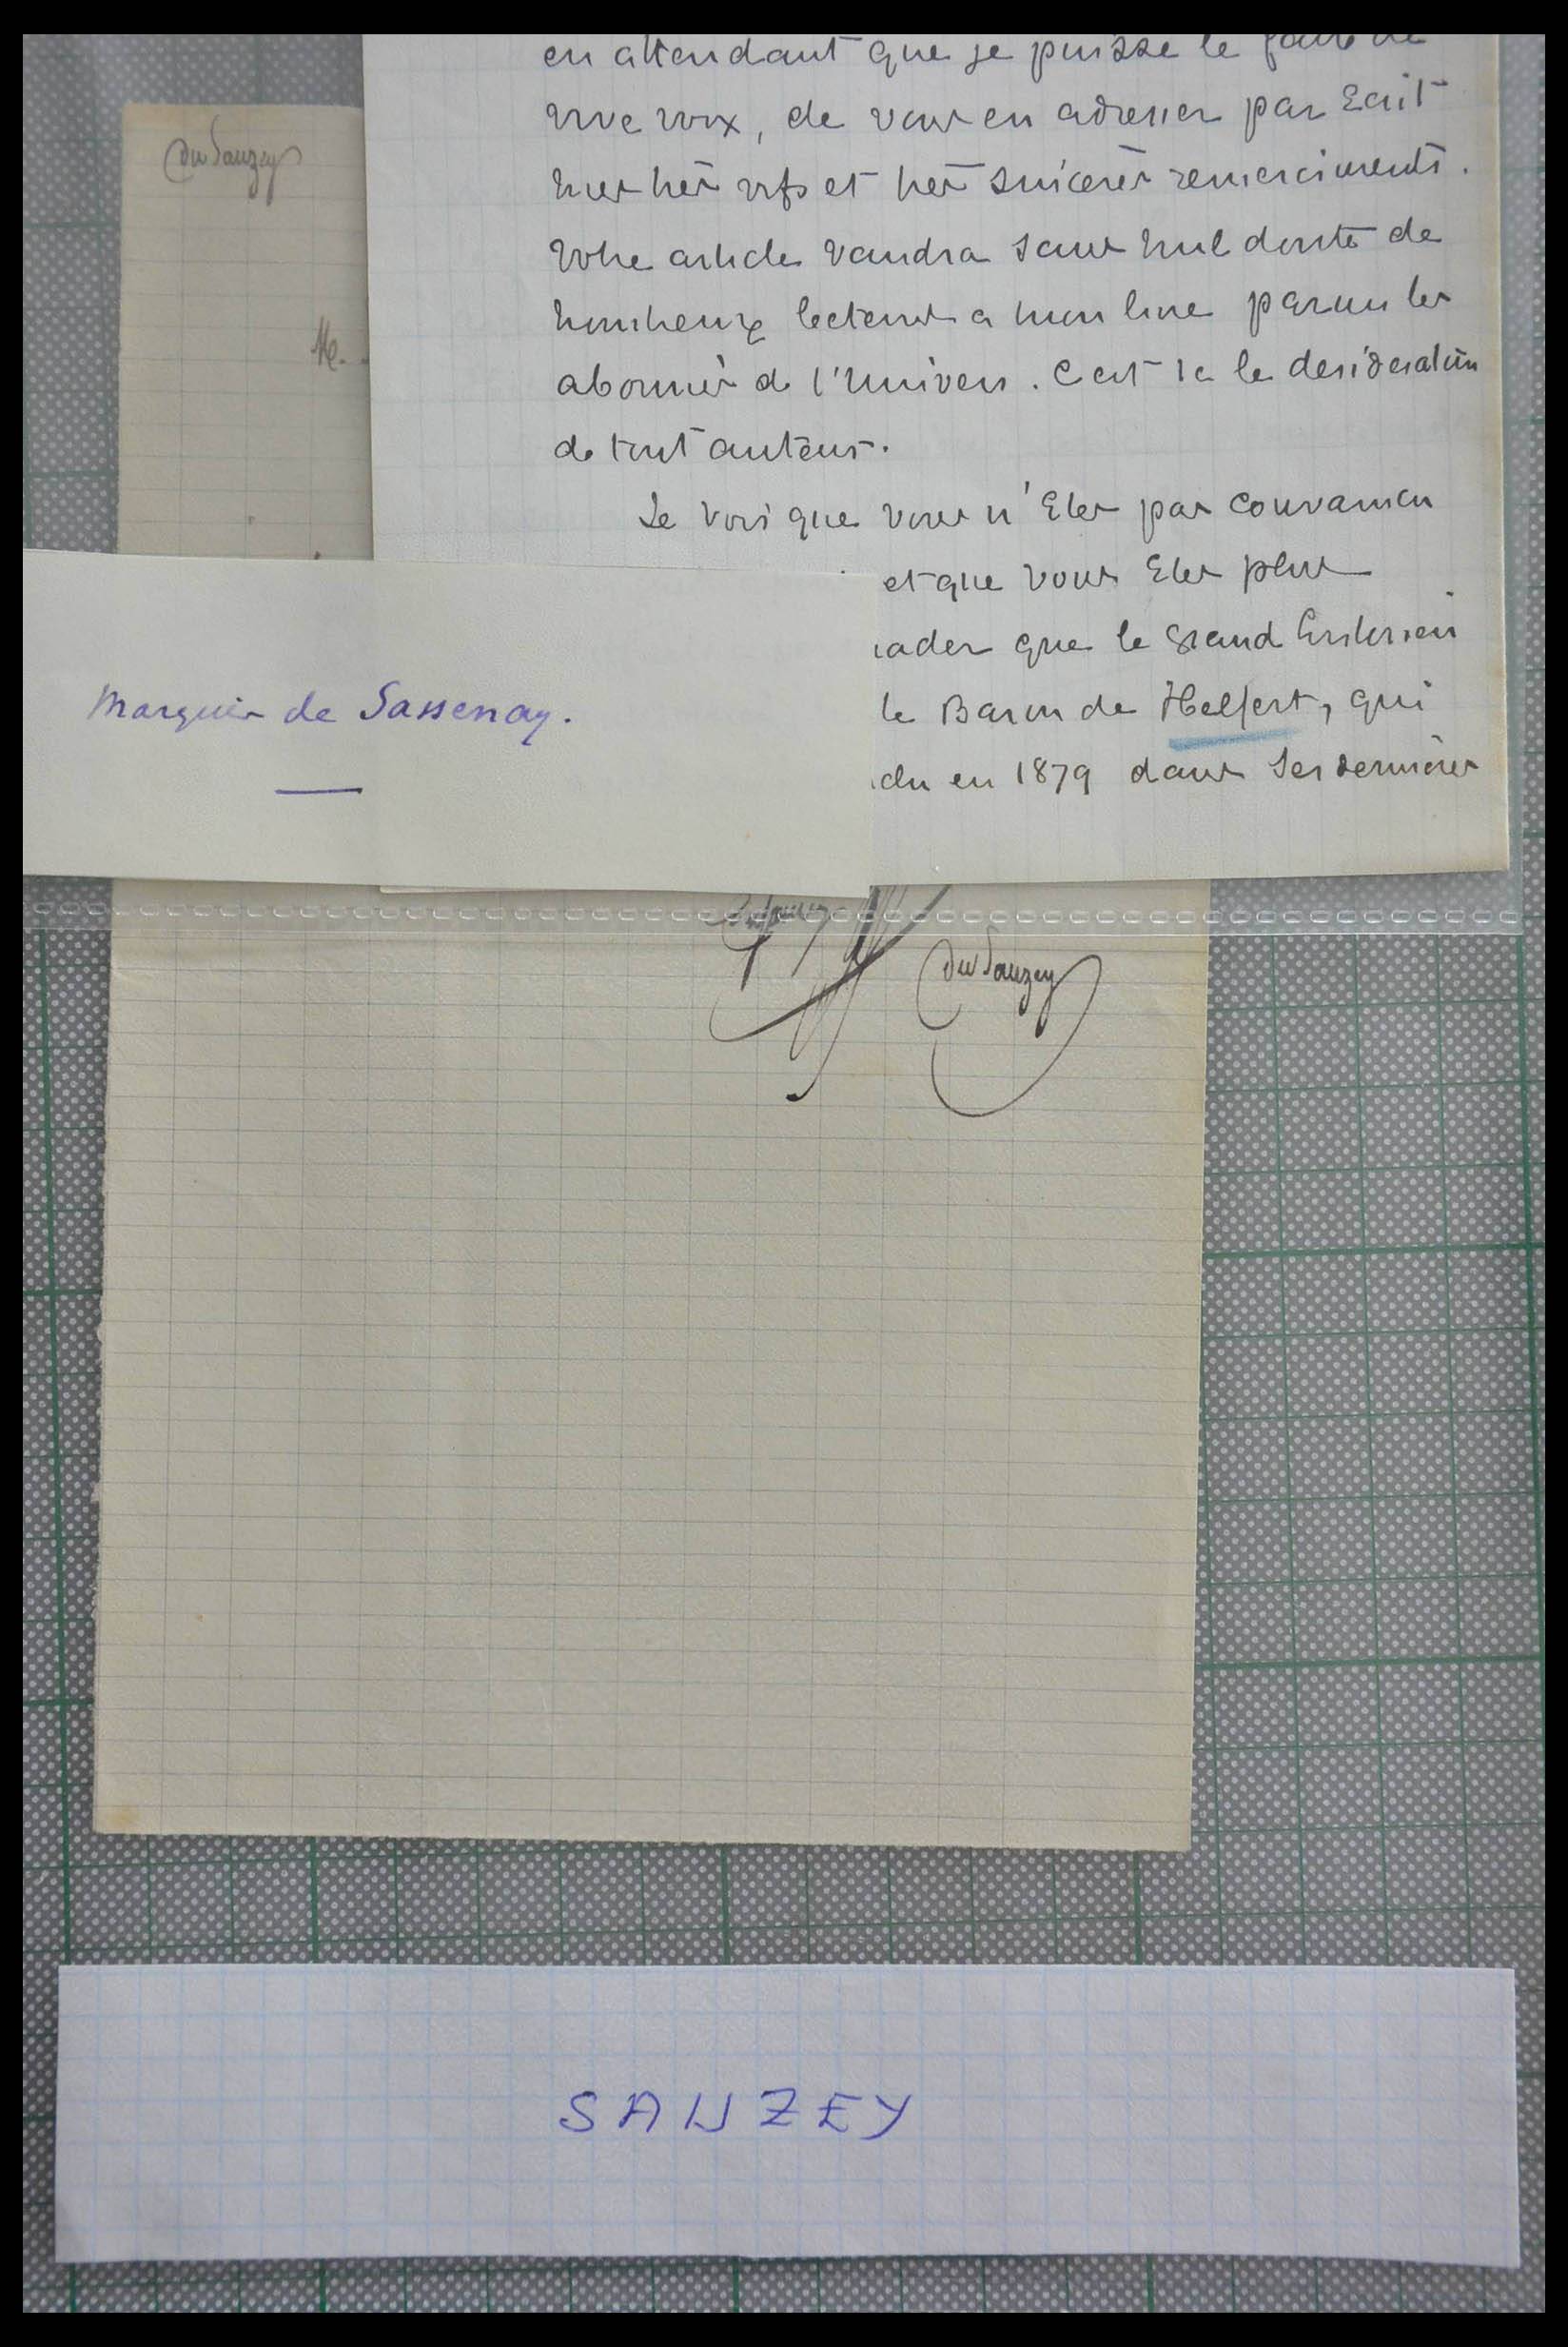 du Sauzey
M.
en attendant que je puisse le faire de
vive voix, de vous en adresser par Ecrit
mes très vifs et très sincères remerciments.
Votre article vaudra sans nul doute de
nombreux lecteurs a mon livre parmi les
abonnés de l'Univers. C'est la le desideratum
de tout auteur.
Je vois que vous n'Etes pas convaincu
et que vous Etes plus
ader que le grand historien
le Baron de Helfert, qui
du en 1879 dans ses dernières
Marquis de Sassenay.
du Sauzey
SAUZEY